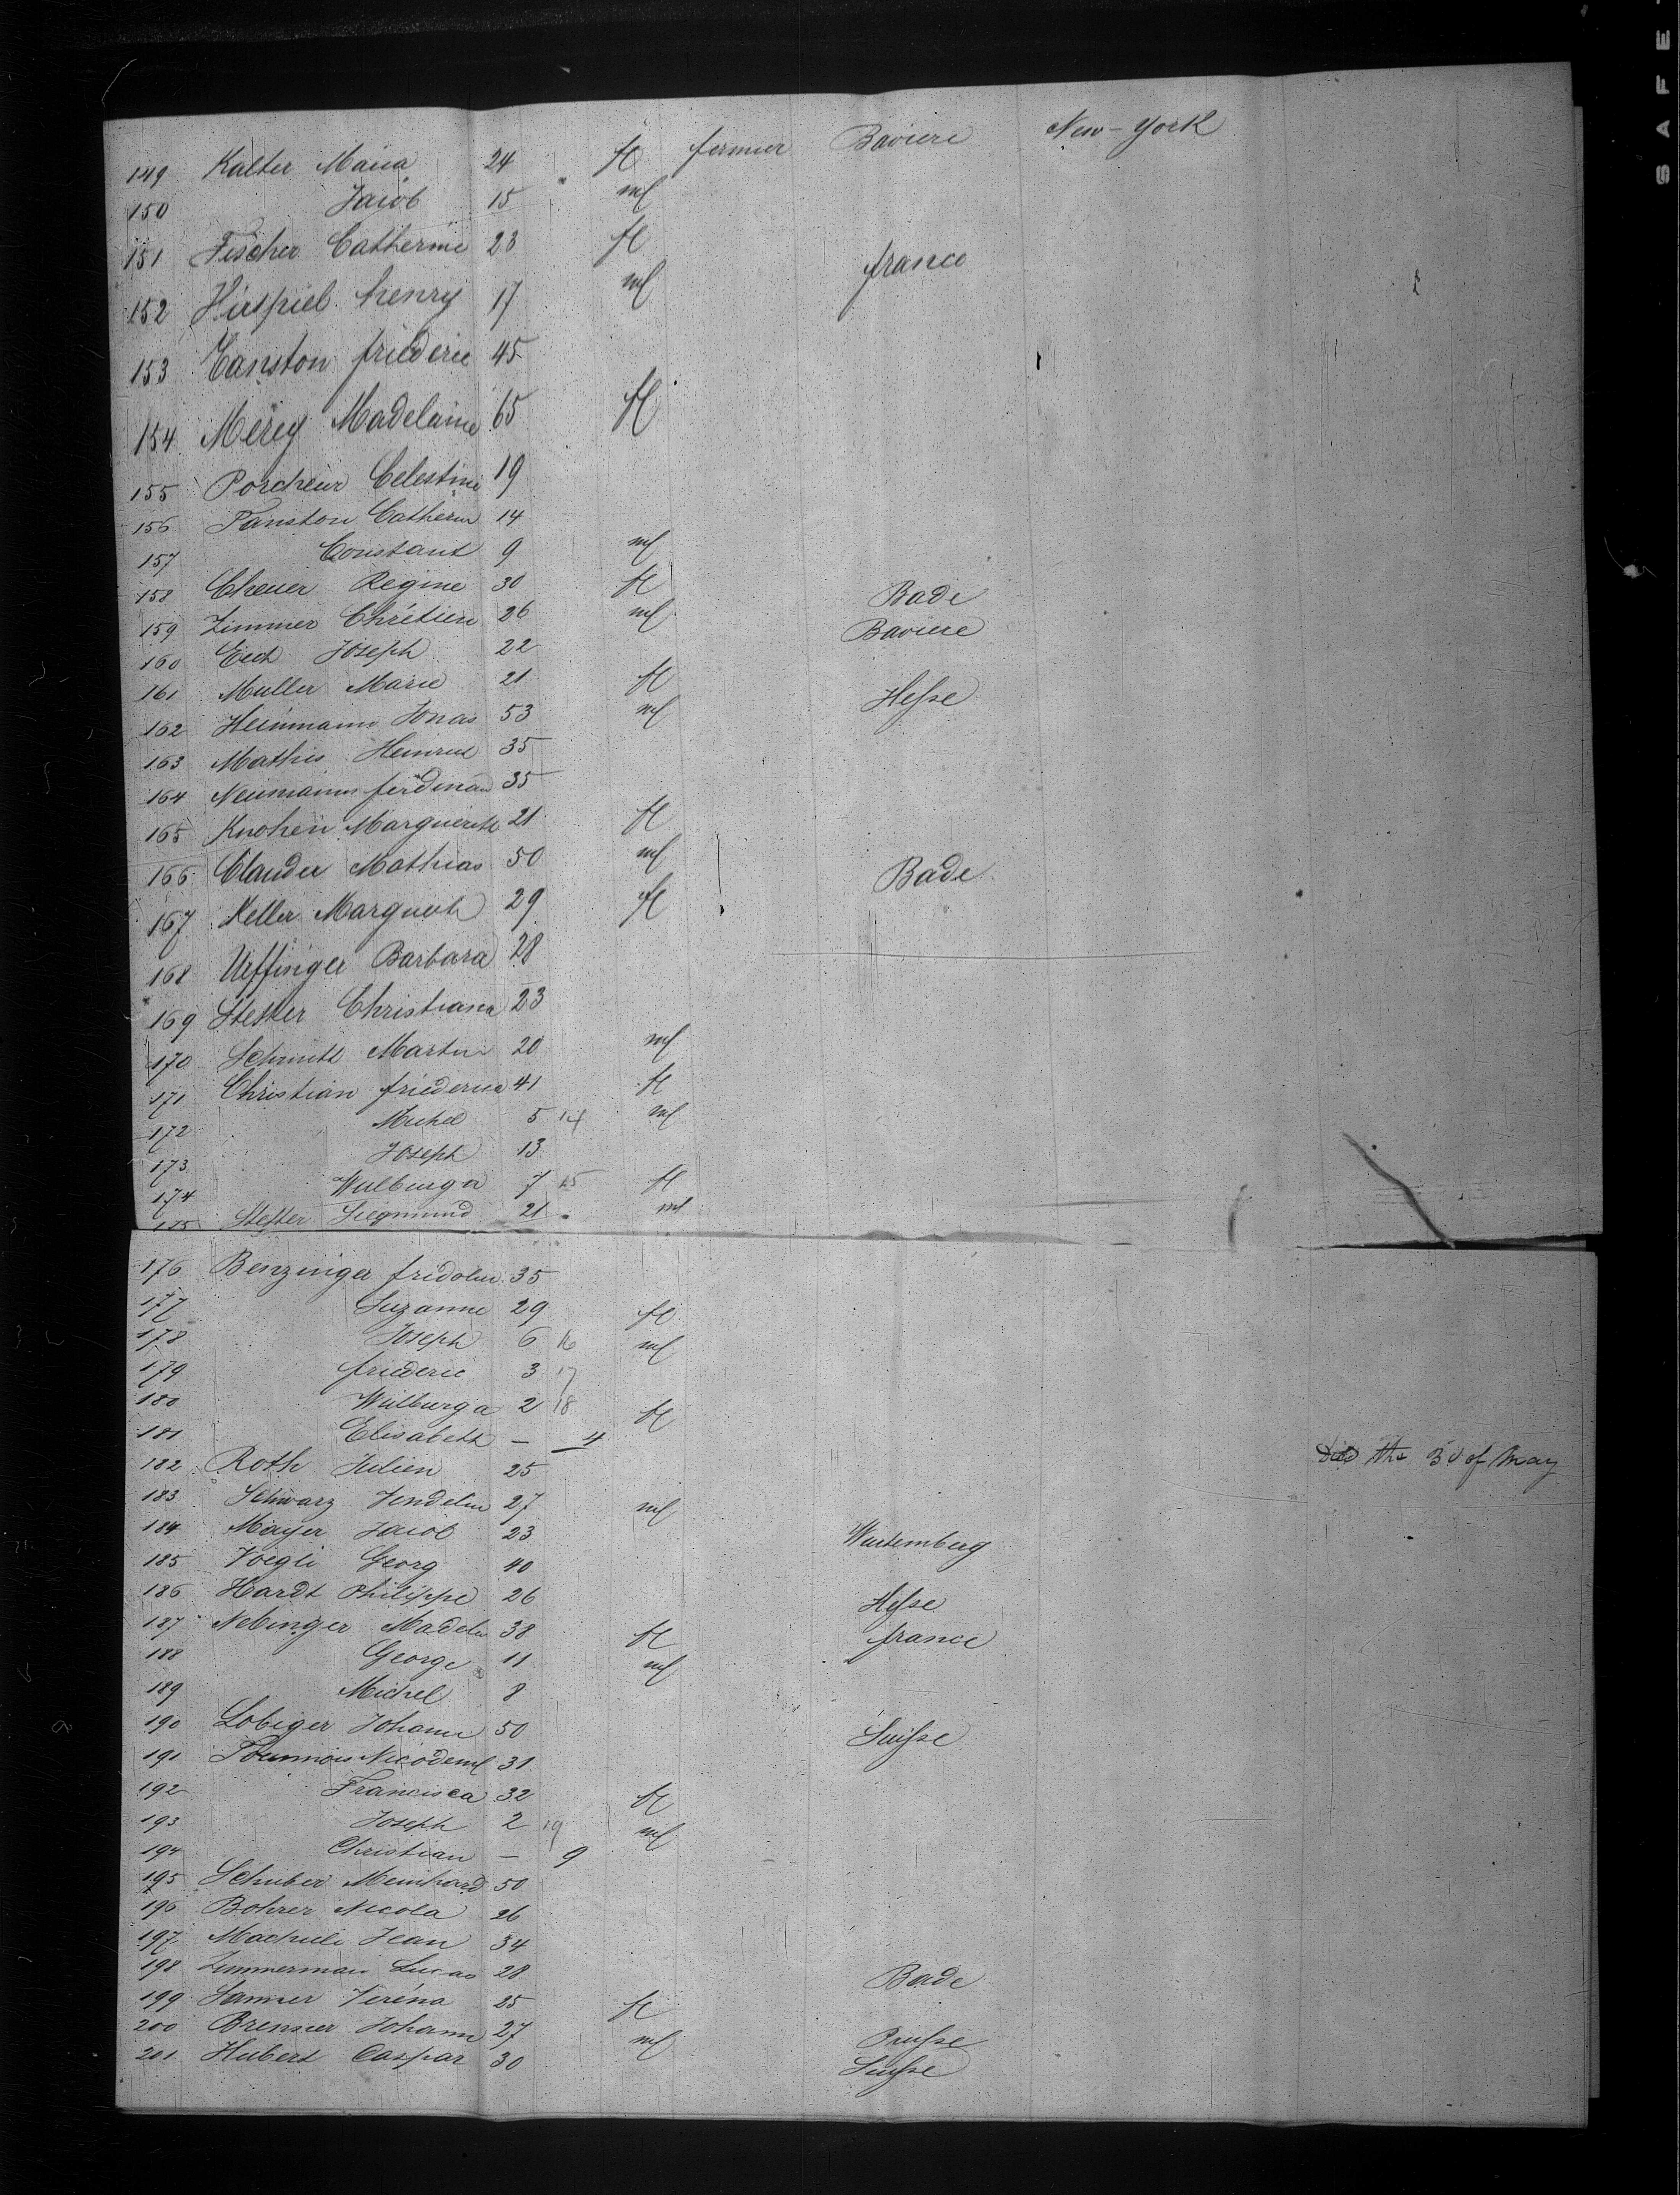 149 Kalter Maria 24 fl fermier Baviere New-York
150 Jacob 15 ml
151 Fischer Catherine 23 fl
152 Hirspiel henry 17 ml france
153 Tanston friederic 45
154 Merey Madelaine 65 fl
155 Porcheur Celestine 19
156 Tanston Catherin 14
157 Constant 9 ml
158 Cheuer Regine 30 fl Bade
159 Zimmer Chrétien 26 ml Baviere
160 Joseph 22
161 Muller Marie 21 fl
162 Heinmann Jonas 53 ml Hesse
163 Mathis Heinrich 35
164 Neumann ferdinand 35
165 Knohen Marguerite 21 fl
166 Clauder Mathias 50 ml
167 Keller Marguerite 29 fl Bade
168 Urffinger Barbara 28
169 Stetter Christiana 23
170 Schmitt Martin 20 ml
171 Christian friederica 41 fl
172 Michel 5 14 ml
173 Joseph 13
174 Walburga 7 15 fl
175 Stetter Siegmund 21 ml
176 Benzinger fridolin 35
177 Suzanne 29 fl
178 Joseph 6 16 ml
179 friederic 3 17
180 Walburga 2 18 fl
181 Elisabeth — 4 Died the 30 of May
182 Roth Julien 25
183 Schwarz Vendelin 27 ml
184 Mayer Jacob 23 Wurtemberg
185 Voegli Georg 40
186 Hardt Philippe 26 Hesse
187 Nebinger Madeln 38 fl france
188 George 11 ml
189 Michel 8
190 Lobiger Johann 50 Suisse
191 Tournois Nicodeme 31
192 Francisca 32 fl
193 Joseph 2 19 ml
194 Christian — 9
195 Schuber Meinhard 50
196 Bohrer Nicola 26
197 Machuli Jean 34
198 Zimmerman Lucas 28 Bade
199 Sanner Veréna 25 fl
200 Brenner Johann 27 ml Prusse
201 Hubert Caspar 30 Suisse
SAFE